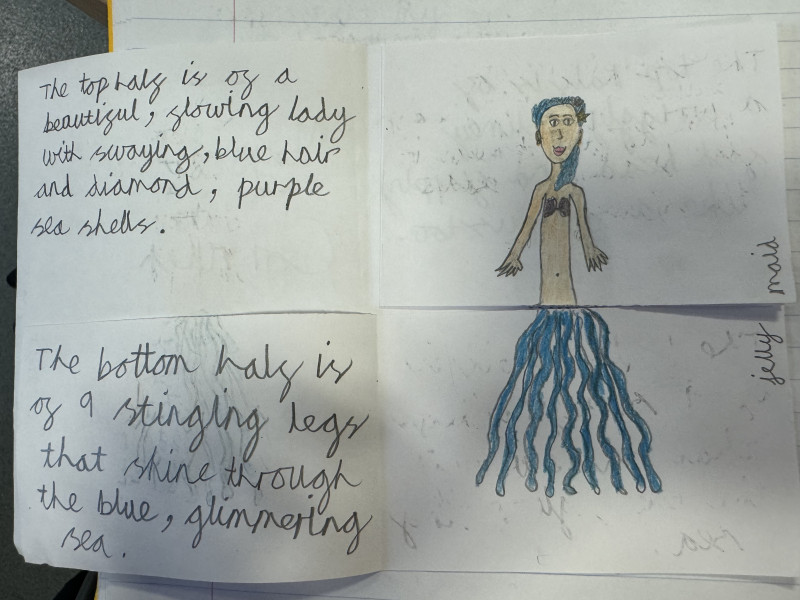 The top half is of a
beautiful, glowing lady
with swaying, blue hair
and diamond, purple
sea shells.
The bottom half is
of 9 stinging legs
that shine through
the blue, glimmering
sea.
maid
jelly